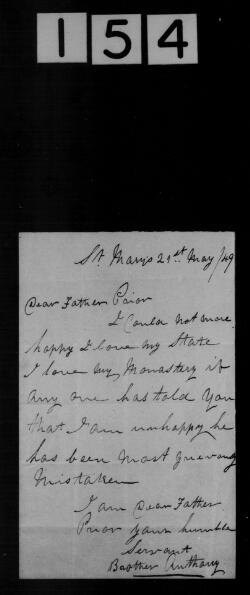 154
St. Marys 21st May /49
Dear Father Prior
I Could not more
happy I love my State
I love my Monastery if
any one has told you
that I am unhappy he
has been most grievously
Mistaken
I am Dear Father
Prior your humble
Servant
Brother Anthony